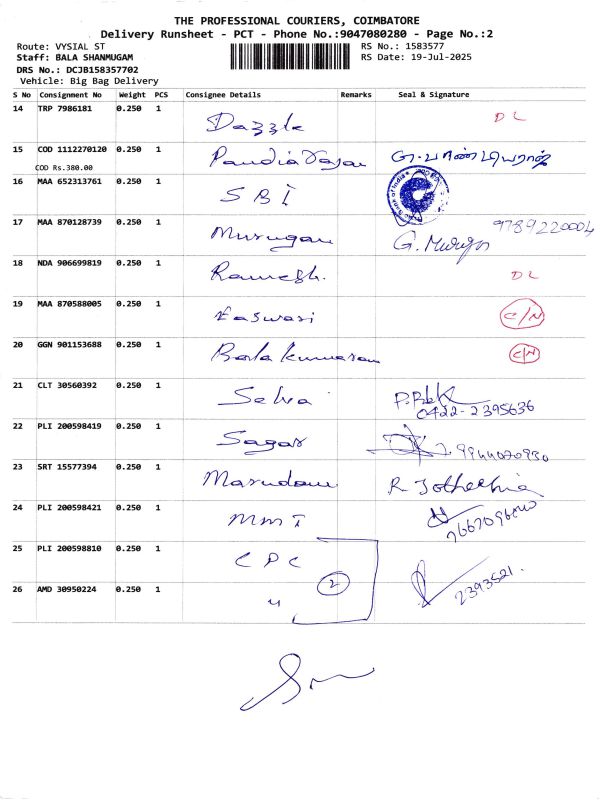 THE PROFESSIONAL COURIERS, COIMBATORE
Delivery Runsheet - PCT - Phone No.:9047080280 - Page No.:2
Route: VYSIAL ST RS No.: 1583577
Staff: BALA SHANMUGAM RS Date: 19-Jul-2025
DRS No.: DCJB158357702
Vehicle: Big Bag Delivery
S No Consignment No Weight PCS Consignee Details Remarks Seal & Signature
14 TRP 7986181 0.250 1 Dazzle DL
15 COD 1112270120 0.250 1 Pandia Rajan G. பாண்டியராஜ்
COD Rs.380.00
16 MAA 652313761 0.250 1 SBI
17 MAA 870128739 0.250 1 Murugan G. Murugan 9789220004
18 NDA 906699819 0.250 1 Ramesh. DL
19 MAA 870588005 0.250 1 Easwari C/N
20 GGN 901153688 0.250 1 Balakumaran C/N
21 CLT 30560392 0.250 1 Selva
0422-2395636
22 PLI 200598419 0.250 1 Sagar 9944020930
23 SRT 15577394 0.250 1 R Jothe
24 PLI 200598421 0.250 1 MMT
25 PLI 200598810 0.250 1 CPC
2
26 AMD 30950224 0.250 1 " 2393521.